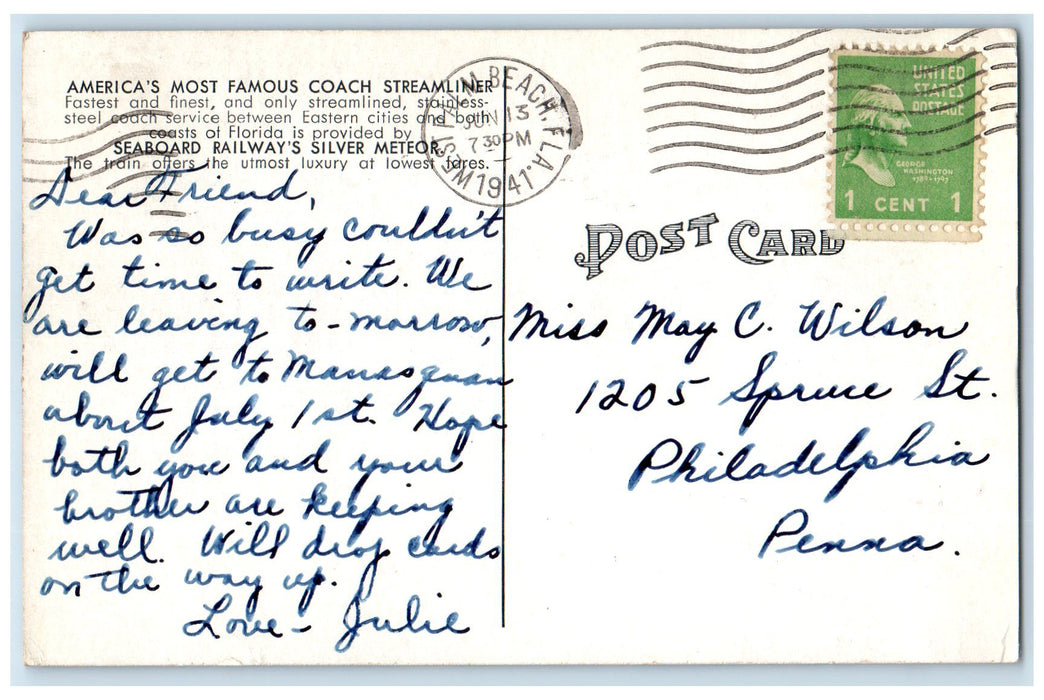 AMERICA'S MOST FAMOUS COACH STREAMLINER
Fastest and finest, and only streamlined, stainless-
steel coach service between Eastern cities and both
coasts of Florida is provided by
SEABOARD RAILWAY'S SILVER METEOR.
The train offers the utmost luxury at lowest fares.
WEST PALM BEACH, FLA.
JUN 13
7 30 PM
1941
UNITED
STATES
POSTAGE
GEORGE
WASHINGTON
1789-1797
1 CENT 1
POST CARD
Dear Friend,
Was so busy couldn't
get time to write. We
are leaving to-morrow,
will get to Manasquan
about July 1st. Hope
both you and your
brother are keeping
well. Will drop cards
on the way up.
Love - Julie
Miss May C. Wilson
1205 Spruce St.
Philadelphia
Penna.